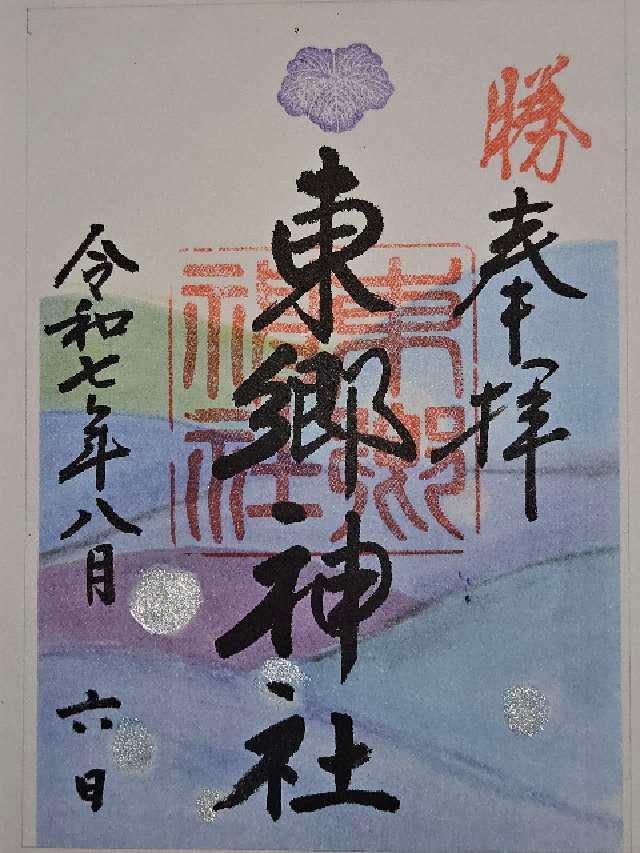 勝
奉拝
東郷神社
東郷神社
令和七年八月
六日